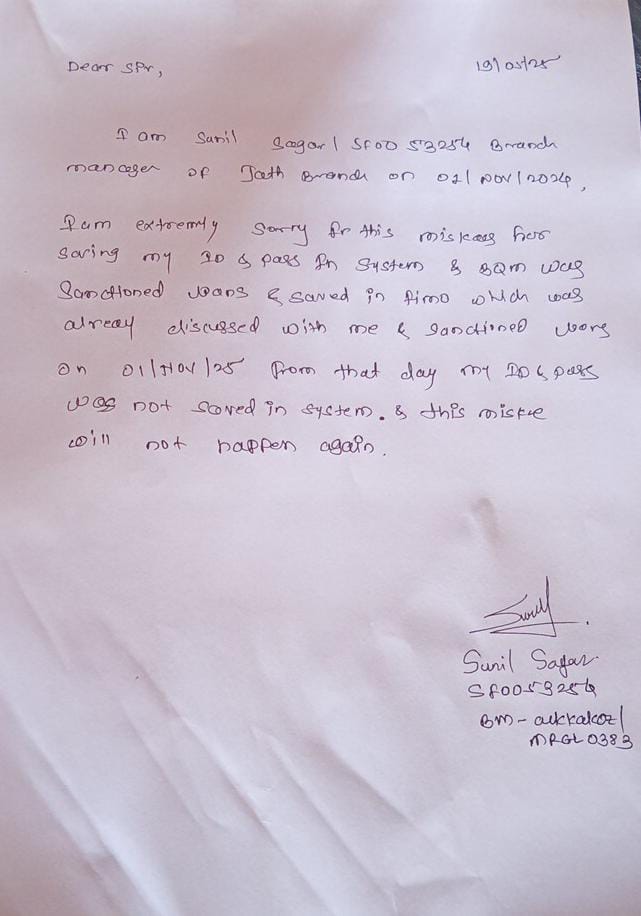 Dear Sir,
19/05/25
I am Sunil Sagar / SF0053254 Branch
manager of Jath Branch on 01/NOV/2024,
I am extremly sorry for this
saving my ID & pass in system & BQM was
Sanctioned loans & saved in fimo which was
already discussed with me & sanctioned loans
on 01/NOV/25 from that day my ID & pass
was not saved in system. & this mistke
will not happen again.
Sunil Sagar.
SF0053254
BM - akkalkot /
MRGL0383